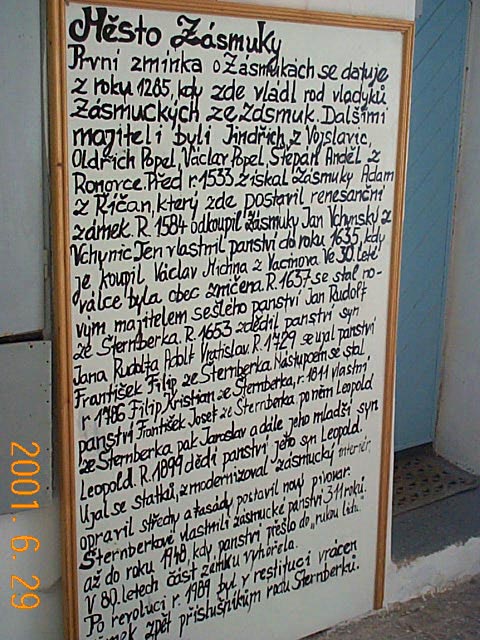 Město Zásmuky
První zmínka o Zásmukách se datuje
z roku 1285, kdy zde vládl rod vladyků
Zásmuckých ze Zásmuk. Dalšími
majiteli byli Jindřich z Vojslavic,
Oldřich Popel, Václav Popel, Štěpán Anděl z
Ronovce. Před r. 1533 získal Zásmuky Adam
z Říčan, který zde postavil renesanční
zámek. R. 1584 odkoupil Zásmuky Jan Vchynský z
Vchynic. Ten vlastnil panství do roku 1635, kdy
je koupil Václav Michna z Vacínova. Ve 30. leté
válce byla obec zničena. R. 1637 se stal no-
vým majitelem sešlého panství Jan Rudolf
ze Šternberka. R. 1653 zdědil panství syn
Jana Rudolfa Adolf Vratislav. R. 1729 se ujal panství
František Filip ze Šternberka. Nástupcem se stal
r. 1786 Filip Kristian ze Šternberka, r. 1811 vlastní
panství František Josef ze Šternberka po něm Leopold
ze Šternberka pak Jaroslav a dále jeho mladší syn
Leopold. R. 1899 dědí panství jeho syn Leopold.
Ujal se statků, zmodernizoval zásmucký interiér,
opravil střechy a fasády postavil nový pivovar.
Šternberkové vlastnili zásmucké panství 311 roků
až do roku 1948 kdy panství přešlo do „rukou lidu“.
V 80. letech část zámku vyhořela.
Po revoluci r. 1989 byl v restituci vrácen
zámek zpět příslušníkům rodu Šternberků.
2001. 6. 29